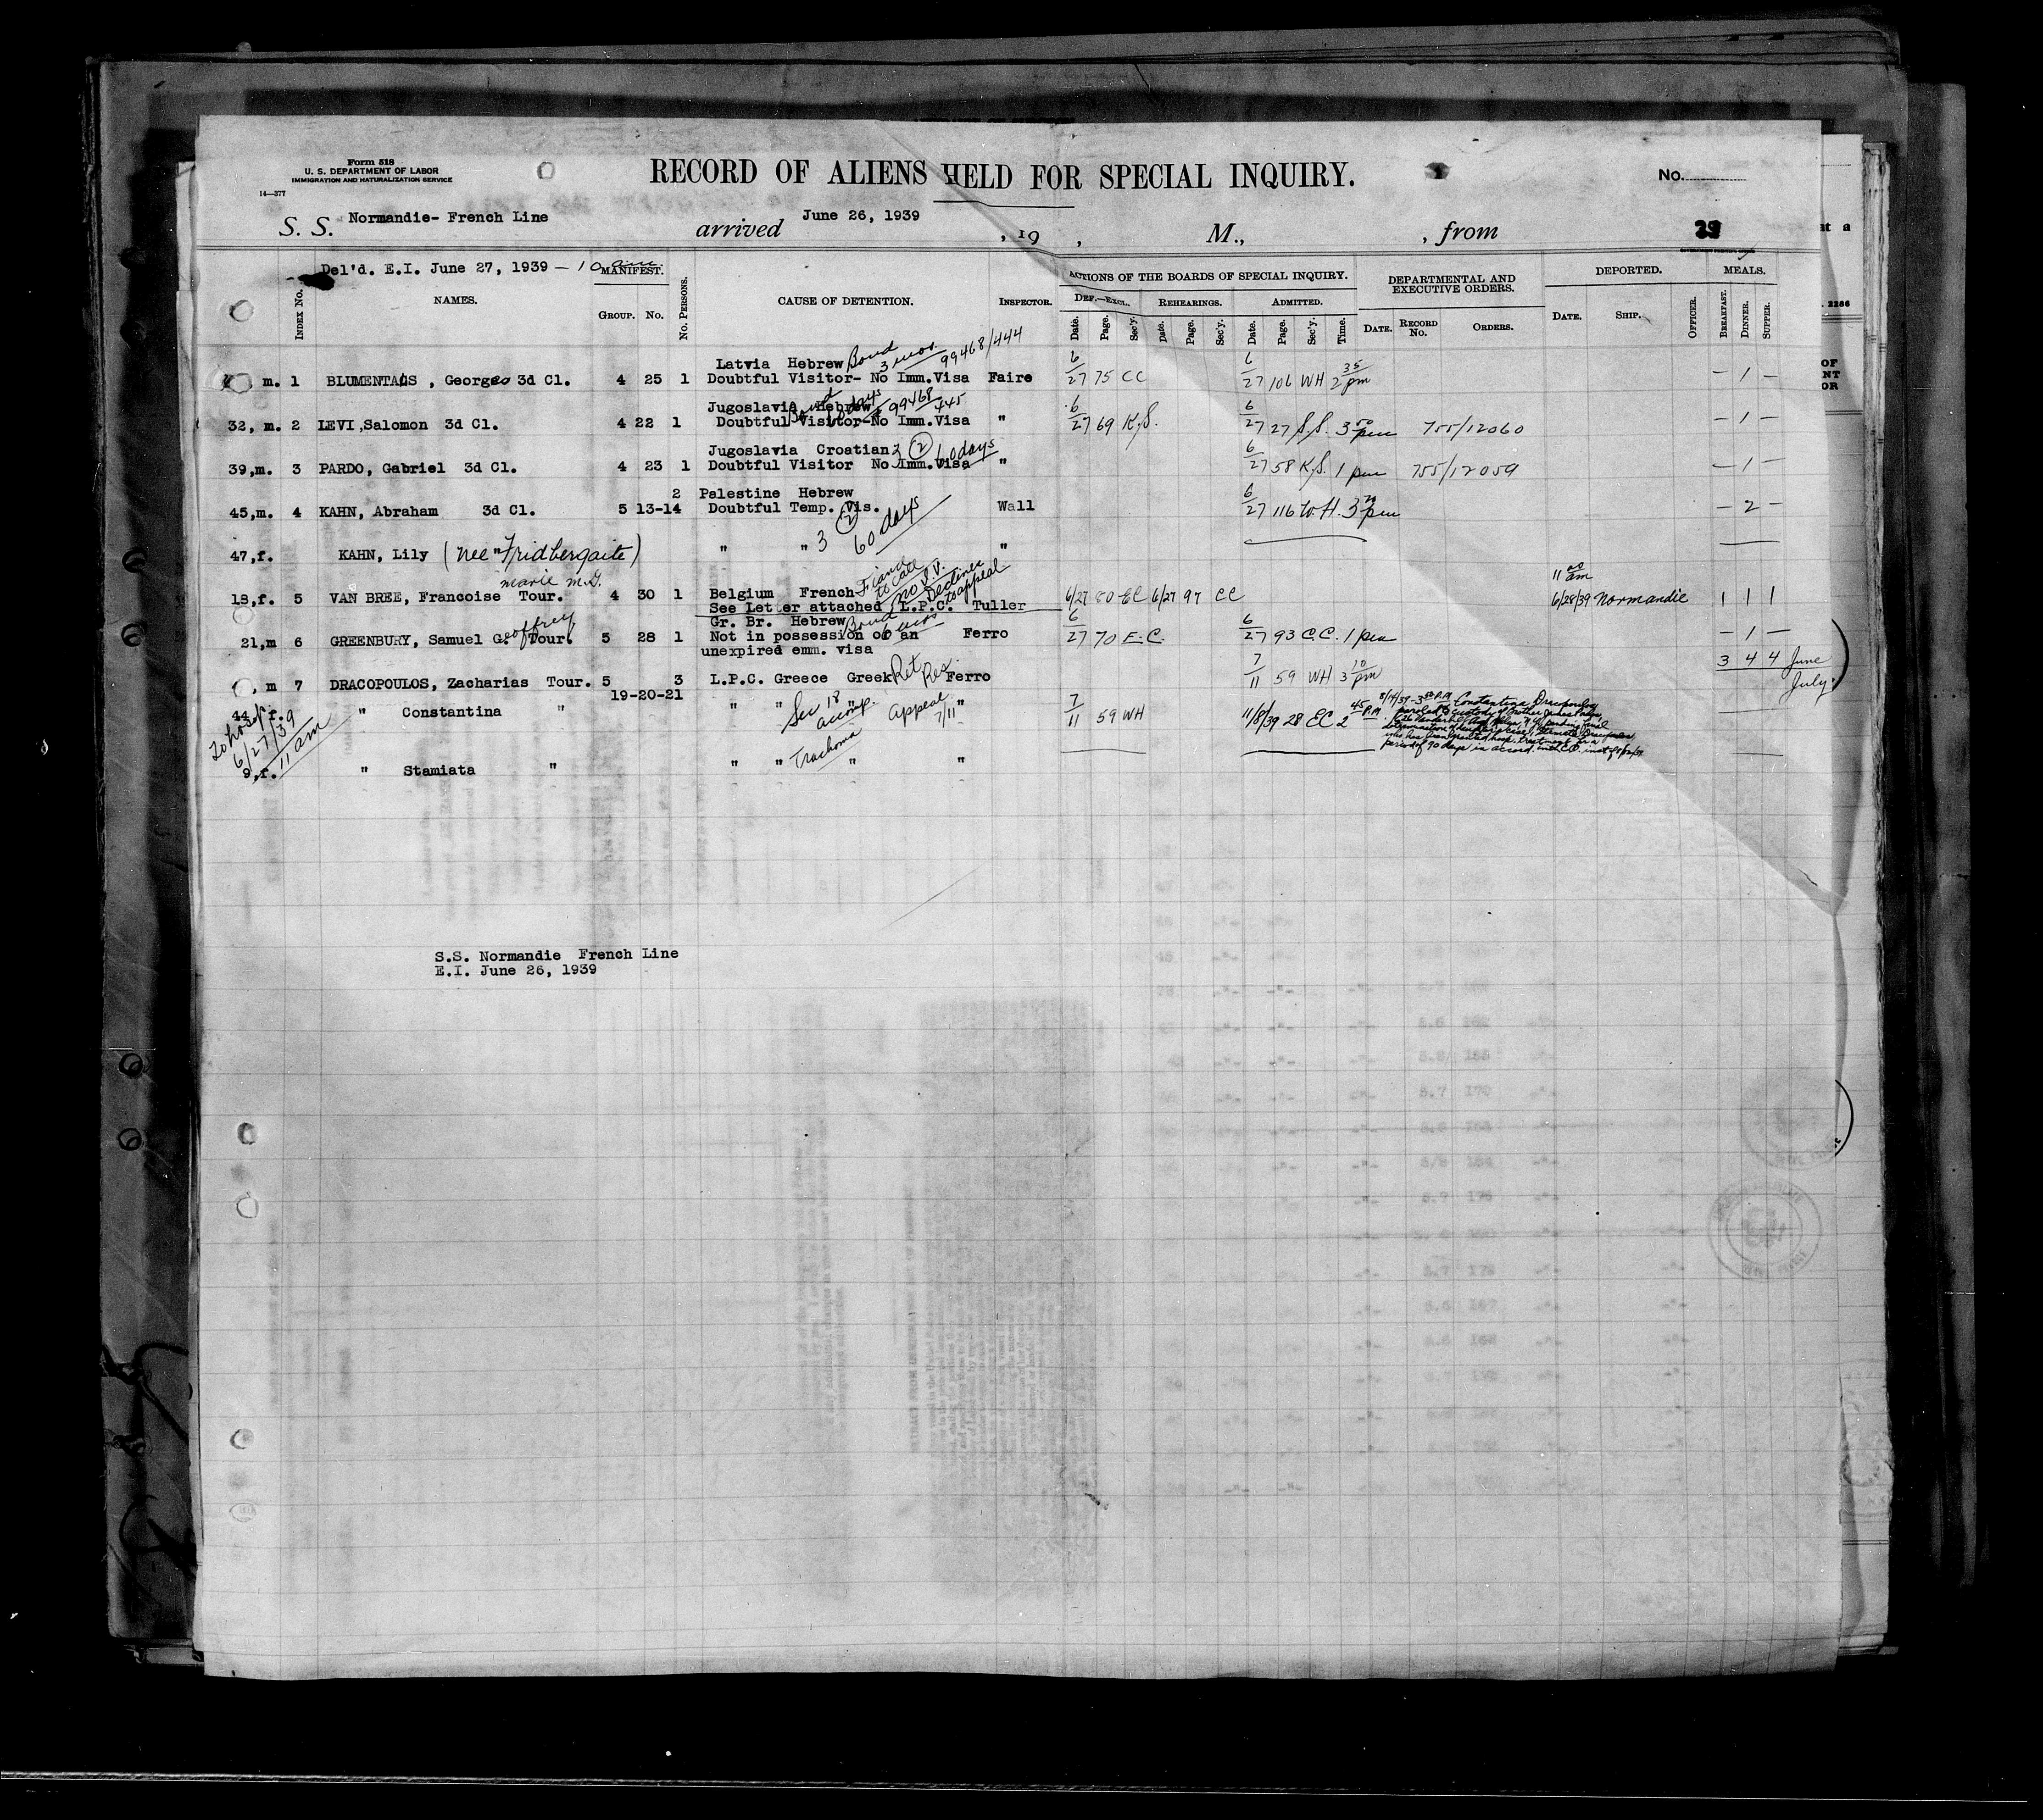 Form 518
U. S. DEPARTMENT OF LABOR
IMMIGRATION AND NATURALIZATION SERVICE
14—377
RECORD OF ALIENS HELD FOR SPECIAL INQUIRY.
No.
S. S. Normandie- French Line arrived June 26, 1939 , 19 , M., , from
Del'd. E.I. June 27, 1939 — 10 am
INDEX No. NAMES. MANIFEST. GROUP. No. No. PERSONS. CAUSE OF DETENTION. INSPECTOR. ACTIONS OF THE BOARDS OF SPECIAL INQUIRY. DEPARTMENTAL AND EXECUTIVE ORDERS. DEPORTED. MEALS.
DEF.—EXCL. REHEARINGS. ADMITTED.
Date. Page. Sec'y. Date. Page. Sec'y. Date. Page. Sec'y. Time. DATE. RECORD No. ORDERS. DATE. SHIP. OFFICER. BREAKFAST. DINNER. SUPPER.
Latvia Hebrew Bond 3 mos. 99468/444
m. 1 BLUMENTALS , Georges 3d Cl. 4 25 1 Doubtful Visitor- No Imm.Visa Faire 6/27 75 CC 6/27 106 WH 2 35 pm — 1 —
Jugoslavia Hebrew Bond 60 days 99468/445
32, m. 2 LEVI,Salomon 3d Cl. 4 22 1 Doubtful Visitor-No Imm.Visa " 6/27 69 K.S. 6/27 27 S.S. 3 50 pm 755/12060 — 1 —
Jugoslavia Croatian 3 (2) 60 days
39,m. 3 PARDO, Gabriel 3d Cl. 4 23 1 Doubtful Visitor No Imm.Visa " 6/27 58 K.S. 1 pm 755/12059 — 1 —
2 Palestine Hebrew
45,m. 4 KAHN, Abraham 3d Cl. 5 13-14 Doubtful Temp. Vis. Wall 6/27 116 W.H. 3 20 pm — 2 —
3 (2) 60 days
47,f. KAHN, Lily (nee "Fridbergaite) " " "
marie m.G.
18,f. 5 VAN BREE, Francoise Tour. 4 30 1 Belgium French no I.V. Declines to appeal
See Letter attached L.P.C. Tuller 6/27 80 EC 6/27 97 CC 11 00 am 6/28/39 Normandie 1 1 1
Gr. Br. Hebrew Bond 6 mos
21,m 6 GREENBURY, Samuel Geoffrey Tour. 5 28 1 Not in possession of an Ferro 6/27 70 E.C. 6/27 93 C.C. 1 pm — 1 —
unexpired emm. visa
3 4 4 June
July.
m 7 DRACOPOULOS, Zacharias Tour. 5 3 L.P.C. Greece Greek Ret Res. Ferro 7/11 59 WH 3 10 pm
19-20-21
44,f. " Constantina " " " " Sec 18 accomp. Appeal 7/11 " 7/11 59 WH 11/8/39 28 EC 2 45 P.M.
8/14/39-3 P.M. Constantina Dracopoulos
paroled to custody of
pending final
determination of
who has been granted hosp. treatment for a
period of 90 days in accord. with
To hosp. 6/27/39 11 am
9,f. " Stamiata " " " Trachoma " "
S.S. Normandie French Line
E.I. June 26, 1939